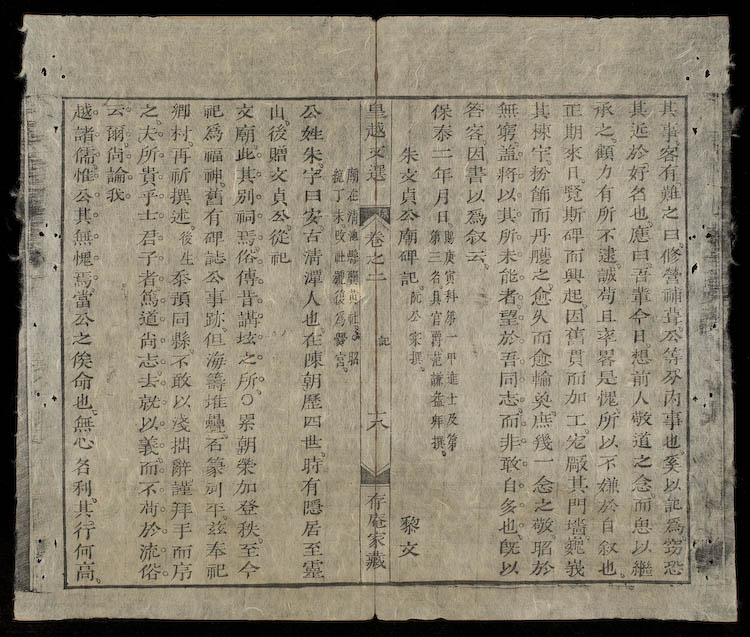 其事客有難之曰修營補葺公等分內事也奚以記為竊恐
其近於好名也應曰吾輩今日想前人敬道之念而思以繼
承之顧力有所不逮誠苟且率畧是愧所以不嫌於自敘也
正期來日覽斯碑而興起因舊貫而加工宏厰其門墻巍峩
其棟宇扮飾而丹雘之愈久而愈輪奐庶幾一念之敬昭於
無窮蓋將以其所未能者望於吾同志而非敢自多也旣以
答客因書以為叙云
保泰二年月日賜庚寅科第一甲進士及第
第三名具官爵范謙益拜撰
朱文貞公廟碑記阮公寀撰 黎文
皇越文選 卷之二 記 十八 存庵家藏
廟在清池縣
光丁未改社號後為
公姓朱字曰安古清潭人也在陳朝歷四世時有隱居至靈
山後贈文貞公從祀
文廟此其別祠焉俗傳昔講垓之所○累朝榮加登秩至今
祀為福神舊有碑誌公事跡但海籌堆疊石篆剥平玆奉祀
鄉村再祈撰述後生忝預同縣不敢以淺拙辭謹拜手而序
之夫所貴乎士君子者篤道尚志去就以義而不苟於流俗
云爾尚論我
越諸儒惟公其無愧焉當公之俟命也無心名利其行何高